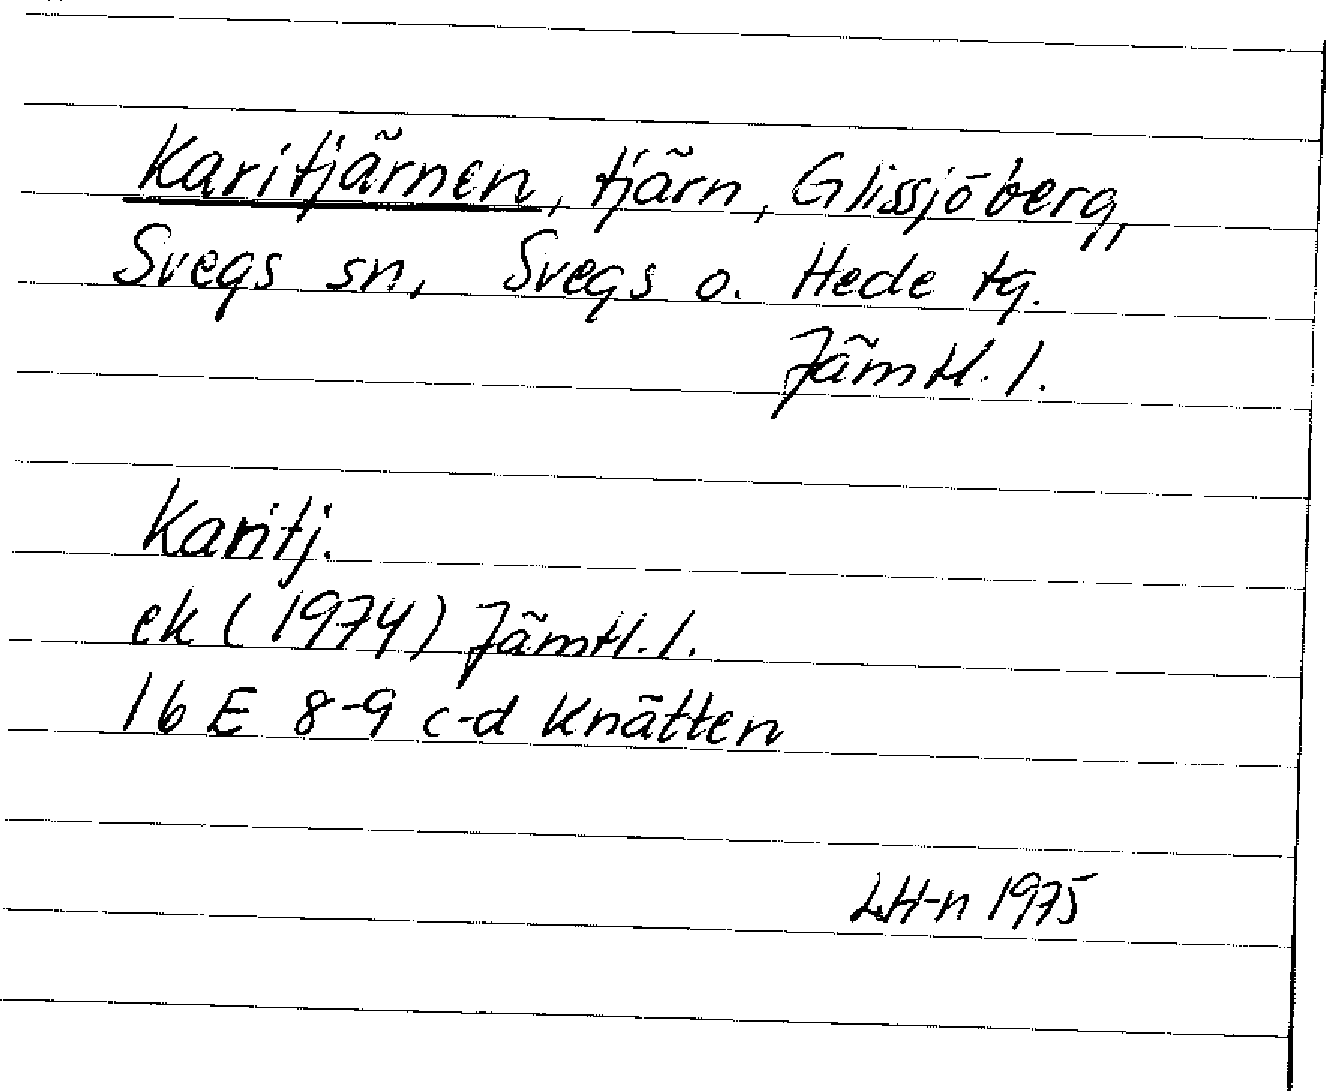 Karitjärnen, tjärn, Glissjöberg,
Svegs sn, Svegs o. Hede tg.
Jämtl. l.
Karitj.
ek (1974) Jämtl. l.
16 E 8-9 c-d Knätten
LH-n 1975